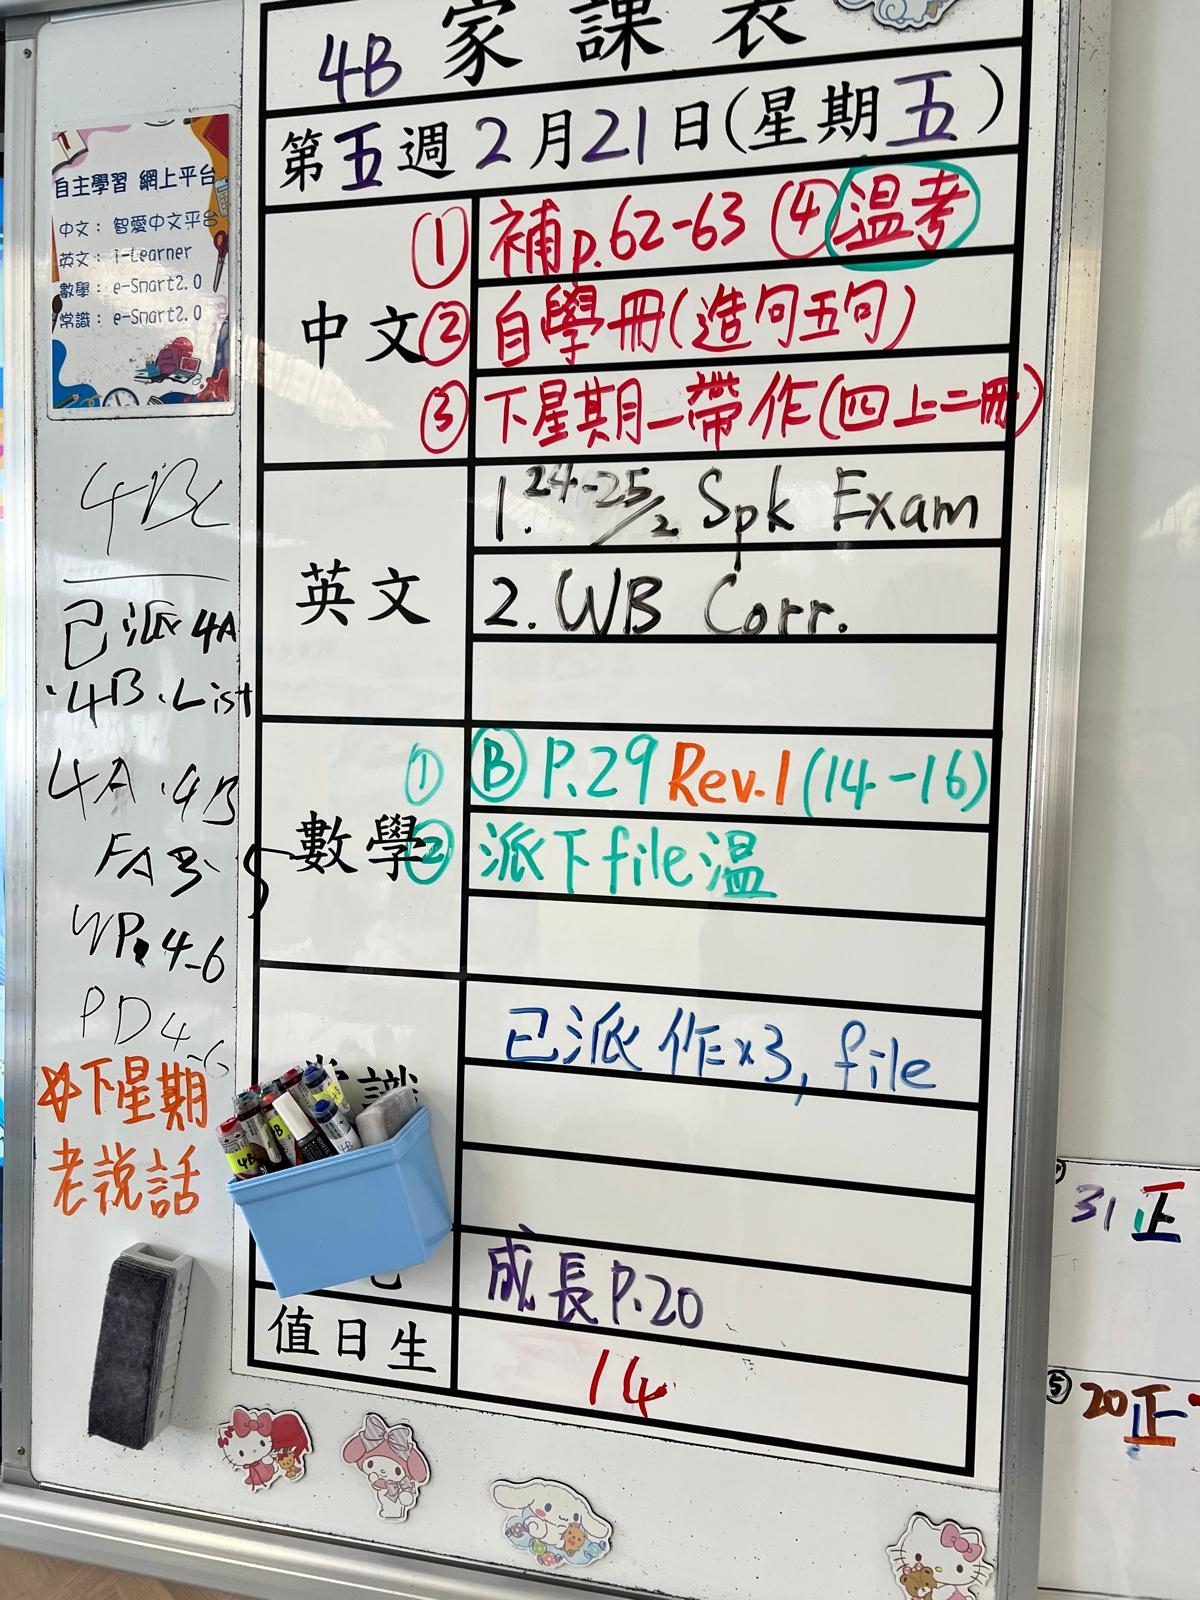 4B 家課表
第五週2月21日(星期五)
自主學習 網上平台
中文：智愛中文平台
英文：i-Learner
數學：e-Smart2.0
常識：e-Smart2.0
中文
① 補p.62-63 ④溫考
② 自學冊(造句五句)
③ 下星期一帶作(四上二冊)
英文
1. 24-25/2 Spk Exam
2. WB Corr.
數學
① Ⓑ P.29 Rev.1 (14-16)
② 派下file溫
常識
已派作x3, file
成長P.20
值日生
14
已派4A
4B List
4A 4B
WP 4-6
PD 4-6
下星期
老說話
31正
⑤ 20正